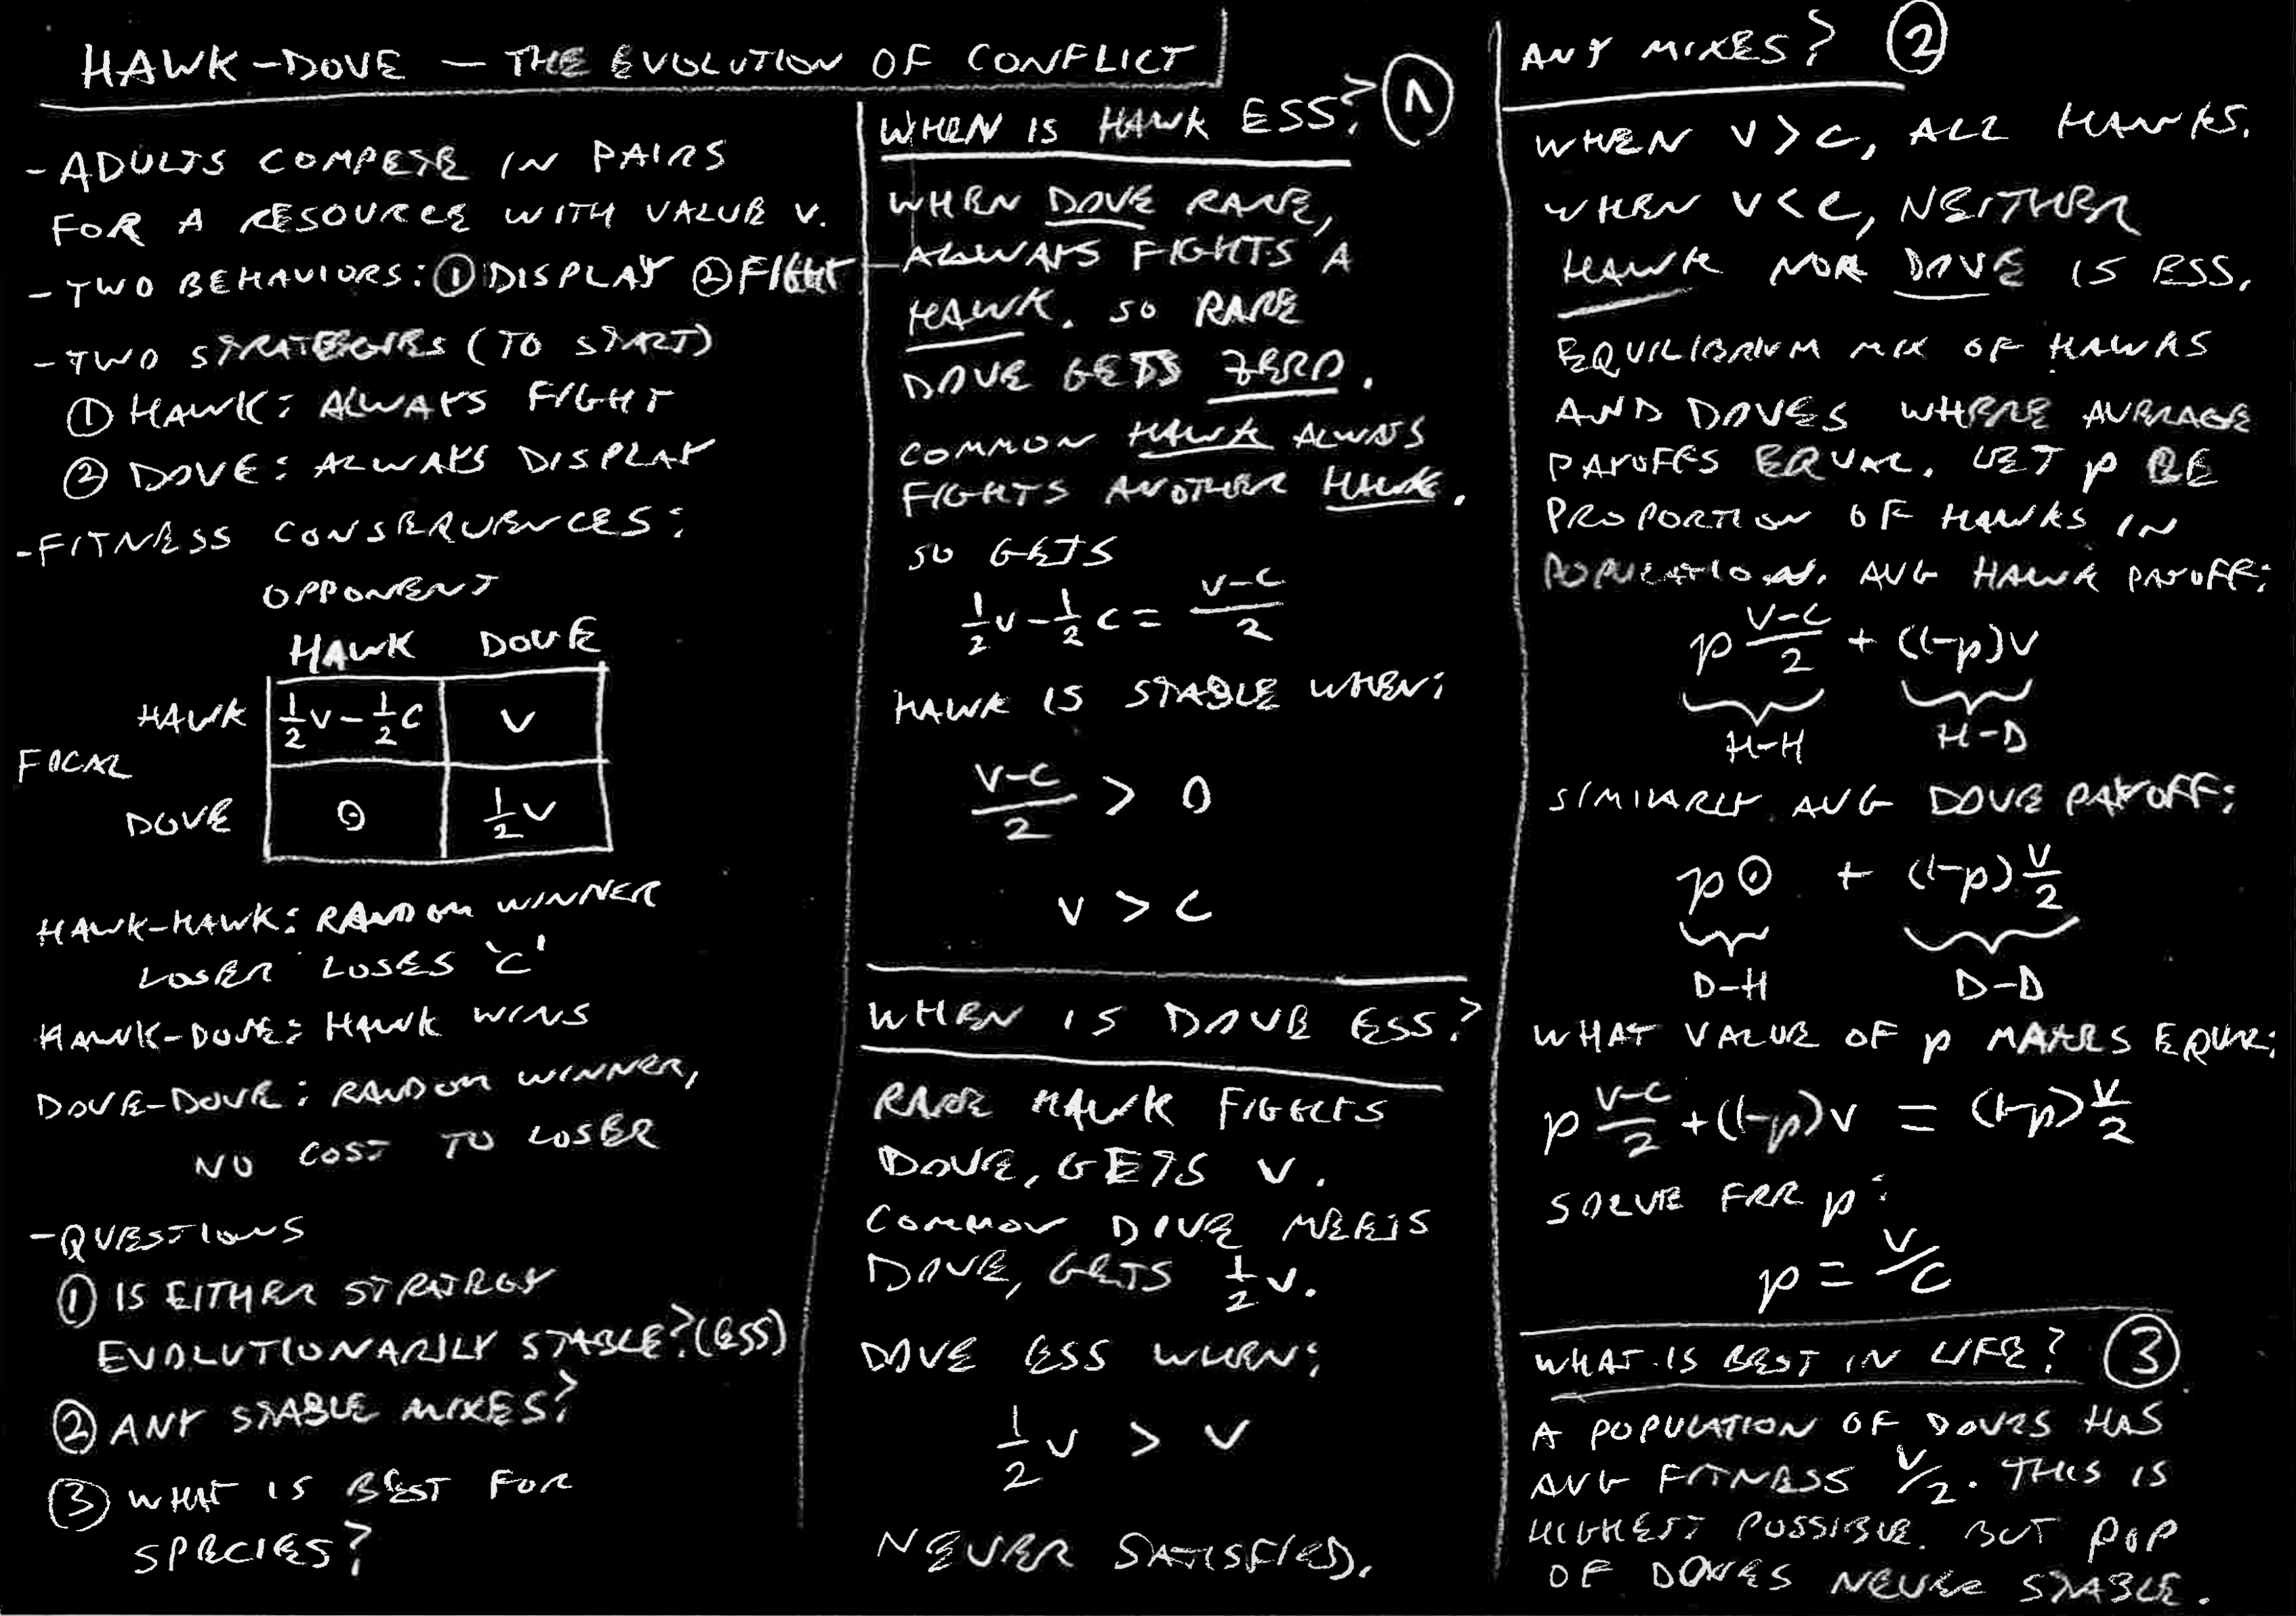 HAWK-DOVE — THE EVOLUTION OF CONFLICT
- ADULTS COMPETE IN PAIRS
FOR A RESOURCE WITH VALUE V.
- TWO BEHAVIORS: ① DISPLAY ② FIGHT
- TWO STRATEGIES (TO START)
① HAWK: ALWAYS FIGHT
② DOVE: ALWAYS DISPLAY
- FITNESS CONSEQUENCES:
OPPONENT
HAWK DOVE
HAWK ½V - ½C V
FOCAL
DOVE 0 ½V
HAWK-HAWK: RANDOM WINNER
LOSER LOSES 'C'
HAWK-DOVE: HAWK WINS
DOVE-DOVE: RANDOM WINNER,
NO COST TO LOSER
- QUESTIONS
① IS EITHER STRATEGY
EVOLUTIONARILY STABLE? (ESS)
② ANY STABLE MIXES?
③ WHAT IS BEST FOR
SPECIES?
WHEN IS HAWK ESS? ①
WHEN DOVE RARE,
ALWAYS FIGHTS A
HAWK. SO RARE
DOVE GETS ZERO.
COMMON HAWK ALWAYS
FIGHTS ANOTHER HAWK.
SO GETS
½V - ½C = (V-C)/2
HAWK IS STABLE WHEN:
(V-C)/2 > 0
V > C
WHEN IS DOVE ESS?
RARE HAWK FIGHTS
DOVE, GETS V.
COMMON DOVE MEETS
DOVE, GETS ½V.
DOVE ESS WHEN:
½V > V
NEVER SATISFIED.
ANY MIXES? ②
WHEN V > C, ALL HAWKS.
WHEN V < C, NEITHER
HAWK NOR DOVE IS ESS.
EQUILIBRIUM MIX OF HAWKS
AND DOVES WHERE AVERAGE
PAYOFFS EQUAL. LET p BE
PROPORTION OF HAWKS IN
POPULATION. AVG HAWK PAYOFF:
p (V-C)/2 + (1-p)V
H-H H-D
SIMILARLY AVG DOVE PAYOFF:
p0 + (1-p) V/2
D-H D-D
WHAT VALUE OF p MAKES EQUAL:
p (V-C)/2 + (1-p)V = (1-p) V/2
SOLVE FOR p:
p = V/C
WHAT IS BEST IN LIFE? ③
A POPULATION OF DOVES HAS
AVG FITNESS V/2. THIS IS
HIGHEST POSSIBLE. BUT POP
OF DOVES NEVER STABLE.